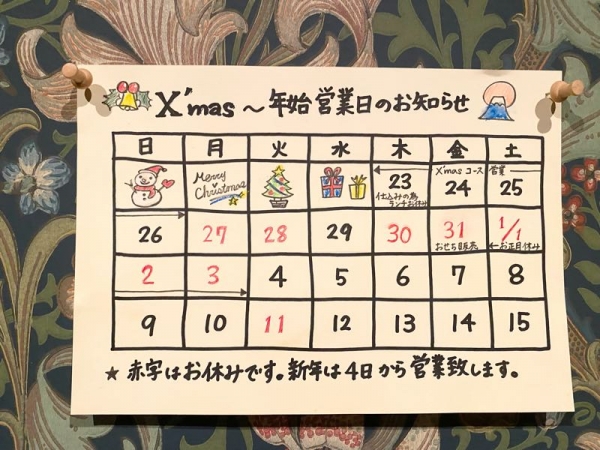 X'mas～年始営業日のお知らせ
日 月 火 水 木 金 土
X'masコース営業
Merry Christmas 23 24 25
仕込みの為ランチお休み
26 27 28 29 30 31 1/1
おせち販売 お正月休み
2 3 4 5 6 7 8
9 10 11 12 13 14 15
★赤字はお休みです。新年は4日から営業致します。